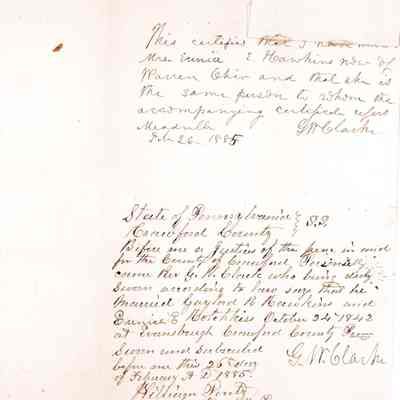 This certifies that I have
Mrs Eunice E Hawkins now of
Warren Ohio and that she is
the same person to whom the
accompanying certificate refers
Meadville G W Clarke
Feb 26. 1885
State of Pennsylvania } S.S
Crawford County
Before me a Justice of the peace in and
for the County of Crawford Personally
came Rev G. W. Clark who being duly
sworn according to law says that he
Married Gaylord R Hawkins and
Eunice E Hotchkiss October 24 1842
at Evansburgh Crawford County Pa
Sworn and subscribed
before me this 26 day G. W. Clarke
of February A D 1885.
William